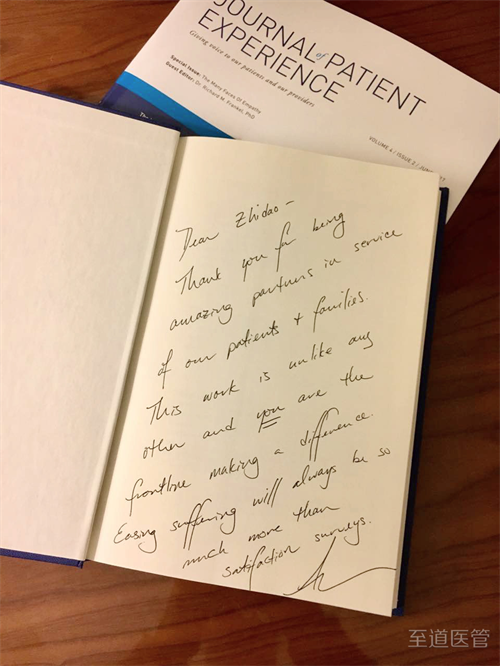 JOURNAL of PATIENT
EXPERIENCE
Giving voice to our patients and our providers
Special Issue: The Many Faces Of Empathy
Guest Editor: Dr. Richard M. Frankel, PhD
VOLUME 4 / ISSUE 2 /
Dear Zhidao -
Thank you for being
amazing partners in service
of our patients + families.
This work is unlike any
other and you are the
frontline making a difference.
Easing suffering will always be so
much more than
satisfaction surveys.
至道医管